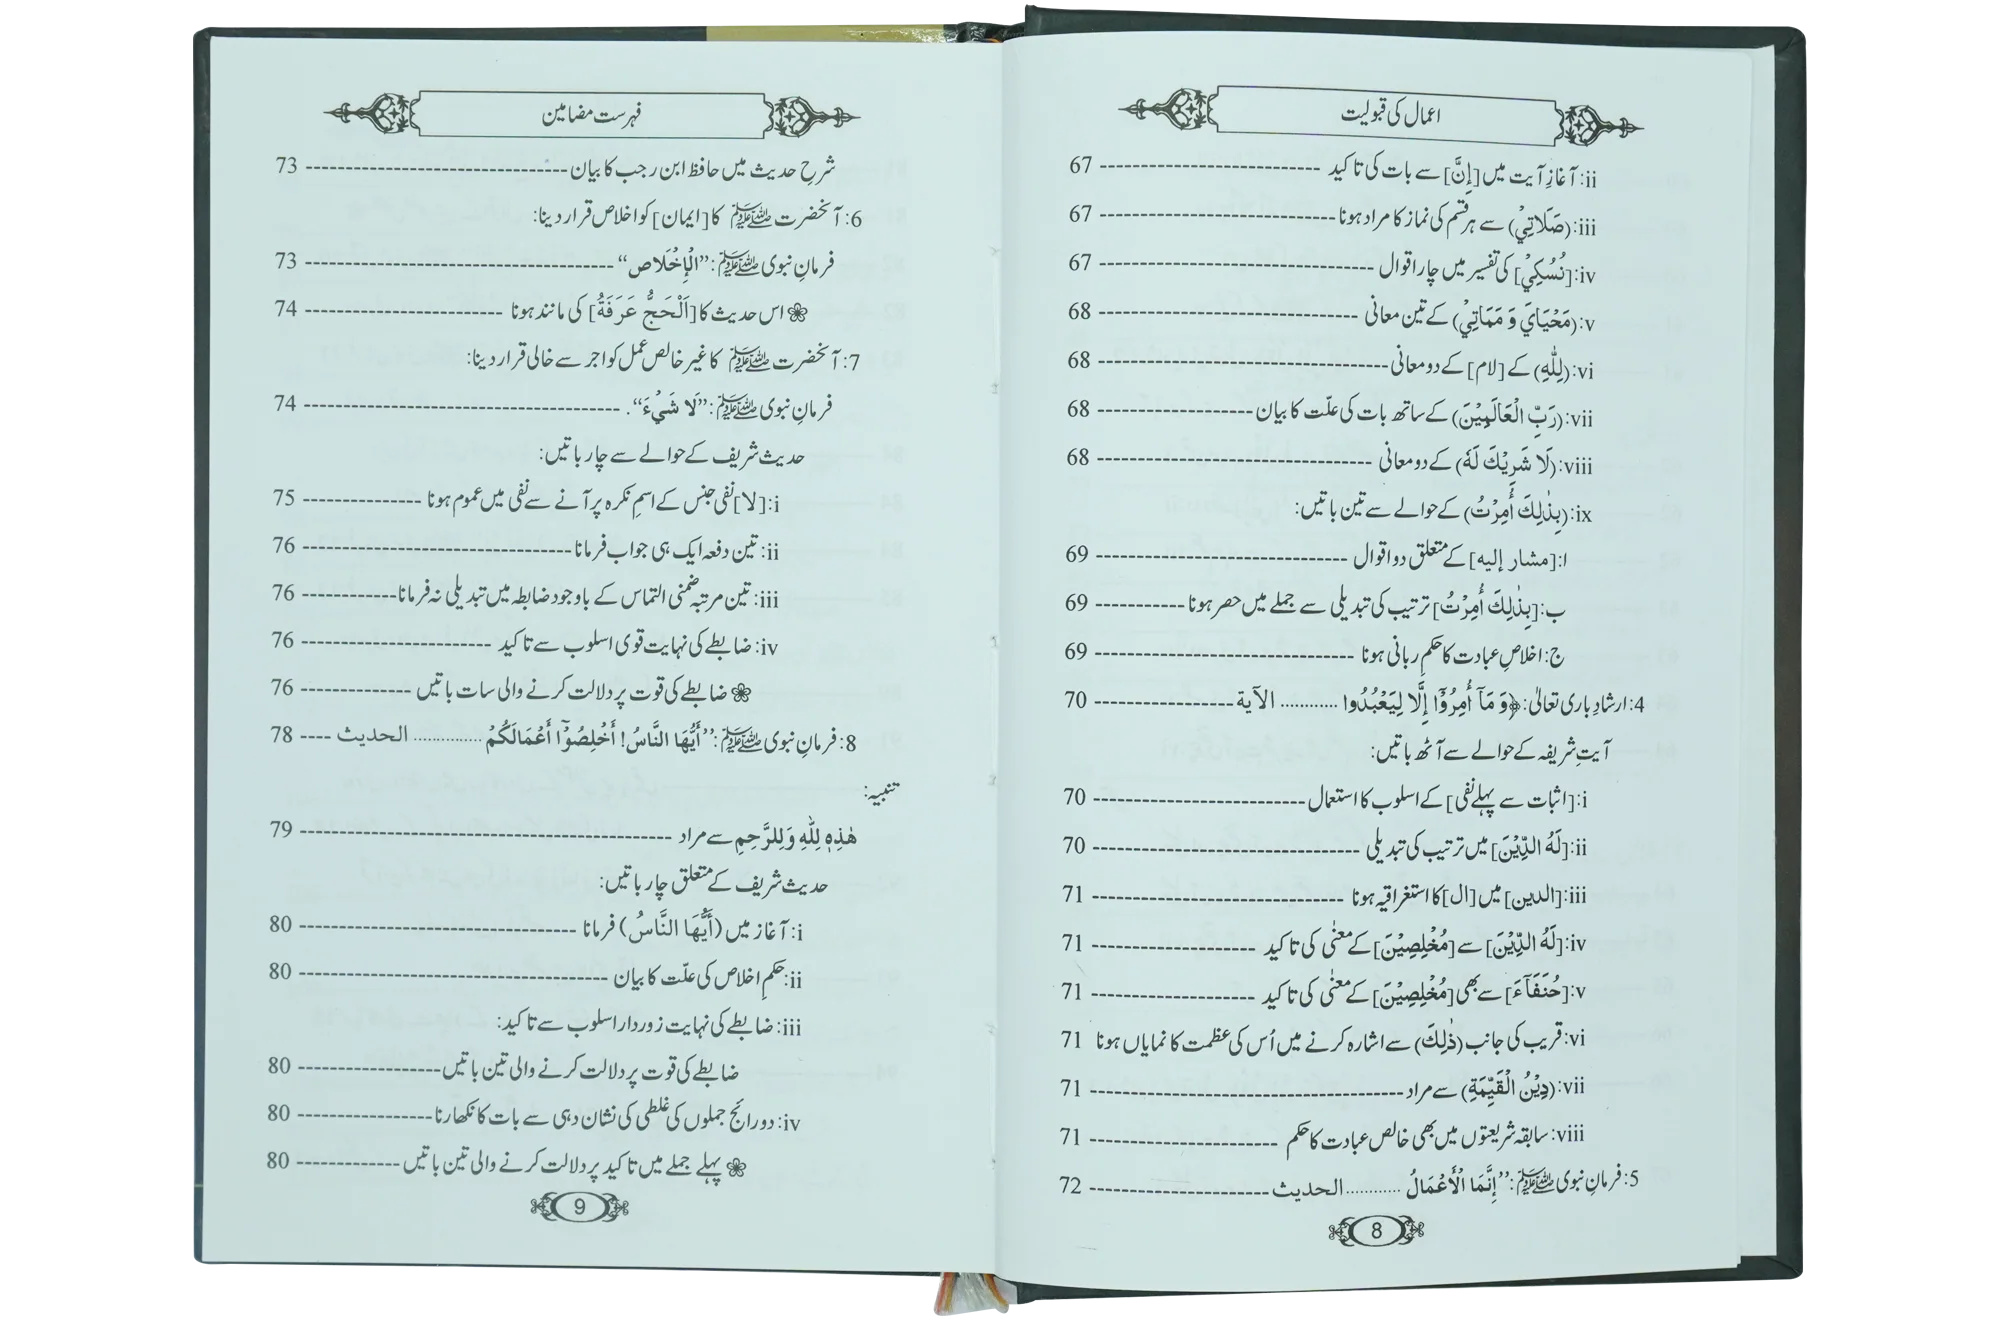 اعمال کی قبولیت
ii: آغازِ آیت میں [إِنَّ] سے بات کی تاکید ---------------------------- 67
iii: (صَلَاتِيْ) سے ہر قسم کی نماز کا مراد ہونا ----------------------------- 67
iv: [نُسُكِيْ] کی تفسیر میں چار اقوال --------------------------------- 67
v: (مَحْيَايَ وَ مَمَاتِيْ) کے تین معانی -------------------------------- 68
vi: (لِلّٰهِ) کے [لام] کے دو معانی ----------------------------------- 68
vii: (رَبِّ الْعَالَمِيْنَ) کے ساتھ بات کی علّت کا بیان ------------------- 68
viii: (لَا شَرِيْكَ لَهٗ) کے دو معانی ---------------------------------- 68
ix: (بِذٰلِكَ أُمِرْتُ) کے حوالے سے تین باتیں:
ا: [مشار إليه] کے متعلق دو اقوال ------------------------------- 69
ب: [بِذٰلِكَ أُمِرْتُ] ترتیب کی تبدیلی سے جملے میں حصر ہونا ----------- 69
ج: اخلاصِ عبادت کا حکمِ ربانی ہونا -------------------------------- 69
4: ارشادِ باری تعالیٰ: ﴿وَ مَآ أُمِرُوْٓا إِلَّا لِيَعْبُدُوا ............ الآية ----------------- 70
آیتِ شریفہ کے حوالے سے آٹھ باتیں:
i: [اثبات سے پہلے نفی] کے اسلوب کا استعمال -------------------------- 70
ii: [لَهُ الدِّيْنَ] میں ترتیب کی تبدیلی --------------------------------- 70
iii: [الدين] میں [ال] کا استغراقیہ ہونا ------------------------------- 71
iv: [لَهُ الدِّيْنَ] سے [مُخْلِصِيْنَ] کے معنٰی کی تاکید -------------------- 71
v: [حُنَفَآءَ] سے بھی [مُخْلِصِيْنَ] کے معنٰی کی تاکید -------------------- 71
vi: قریب کی جانب (ذٰلِكَ) سے اشارہ کرنے میں اُس کی عظمت کا نمایاں ہونا 71
vii: (دِيْنُ الْقَيِّمَةِ) سے مراد --------------------------------------- 71
viii: سابقہ شریعتوں میں بھی خالص عبادت کا حکم ----------------------- 71
5: فرمانِ نبوی ﷺ: ”إِنَّمَا الْأَعْمَالُ ............ الحديث ---------------------- 72
8
فہرست مضامین
شرحِ حدیث میں حافظ ابن رجب کا بیان -------------------------------- 73
6: آنحضرت ﷺ کا [ایمان] کو اخلاص قرار دینا:
فرمانِ نبوی ﷺ: ”الْإِخْلَاص“ -------------------------------------- 73
❀ اس حدیث کا [اَلْحَجُّ عَرَفَةُ] کی مانند ہونا ------------------------ 74
7: آنحضرت ﷺ کا غیر خالص عمل کو اجر سے خالی قرار دینا:
فرمانِ نبوی ﷺ: ”لَا شَيْءَ“. --------------------------------------- 74
حدیث شریف کے حوالے سے چار باتیں:
i: [لا] نفی جنس کے اسمِ نکرہ پر آنے سے نفی میں عموم ہونا --------------- 75
ii: تین دفعہ ایک ہی جواب فرمانا --------------------------------- 76
iii: تین مرتبہ ضمنی التماس کے باوجود ضابطہ میں تبدیلی نہ فرمانا ------------ 76
iv: ضابطے کی نہایت قوی اسلوب سے تاکید ----------------------- 76
❀ ضابطے کی قوت پر دلالت کرنے والی سات باتیں -------------- 76
8: فرمانِ نبوی ﷺ: ”أَيُّهَا النَّاسُ! أَخْلِصُوْٓا أَعْمَالَكُمْ ............... الحديث ---- 78
تنبیہ:
هٰذِهٖ لِلّٰهِ وَلِلرَّحِمِ سے مراد --------------------------------------------- 79
حدیث شریف کے متعلق چار باتیں:
i: آغاز میں (أَيُّهَا النَّاسُ) فرمانا ---------------------------------- 80
ii: حکمِ اخلاص کی علّت کا بیان -------------------------------------- 80
iii: ضابطے کی نہایت زوردار اسلوب سے تاکید:
ضابطے کی قوت پر دلالت کرنے والی تین باتیں ----------------- 80
iv: دو رائج جملوں کی غلطی کی نشان دہی سے بات کا نکھارنا ---------------- 80
❀ پہلے جملے میں تاکید پر دلالت کرنے والی تین باتیں ------------- 80
9